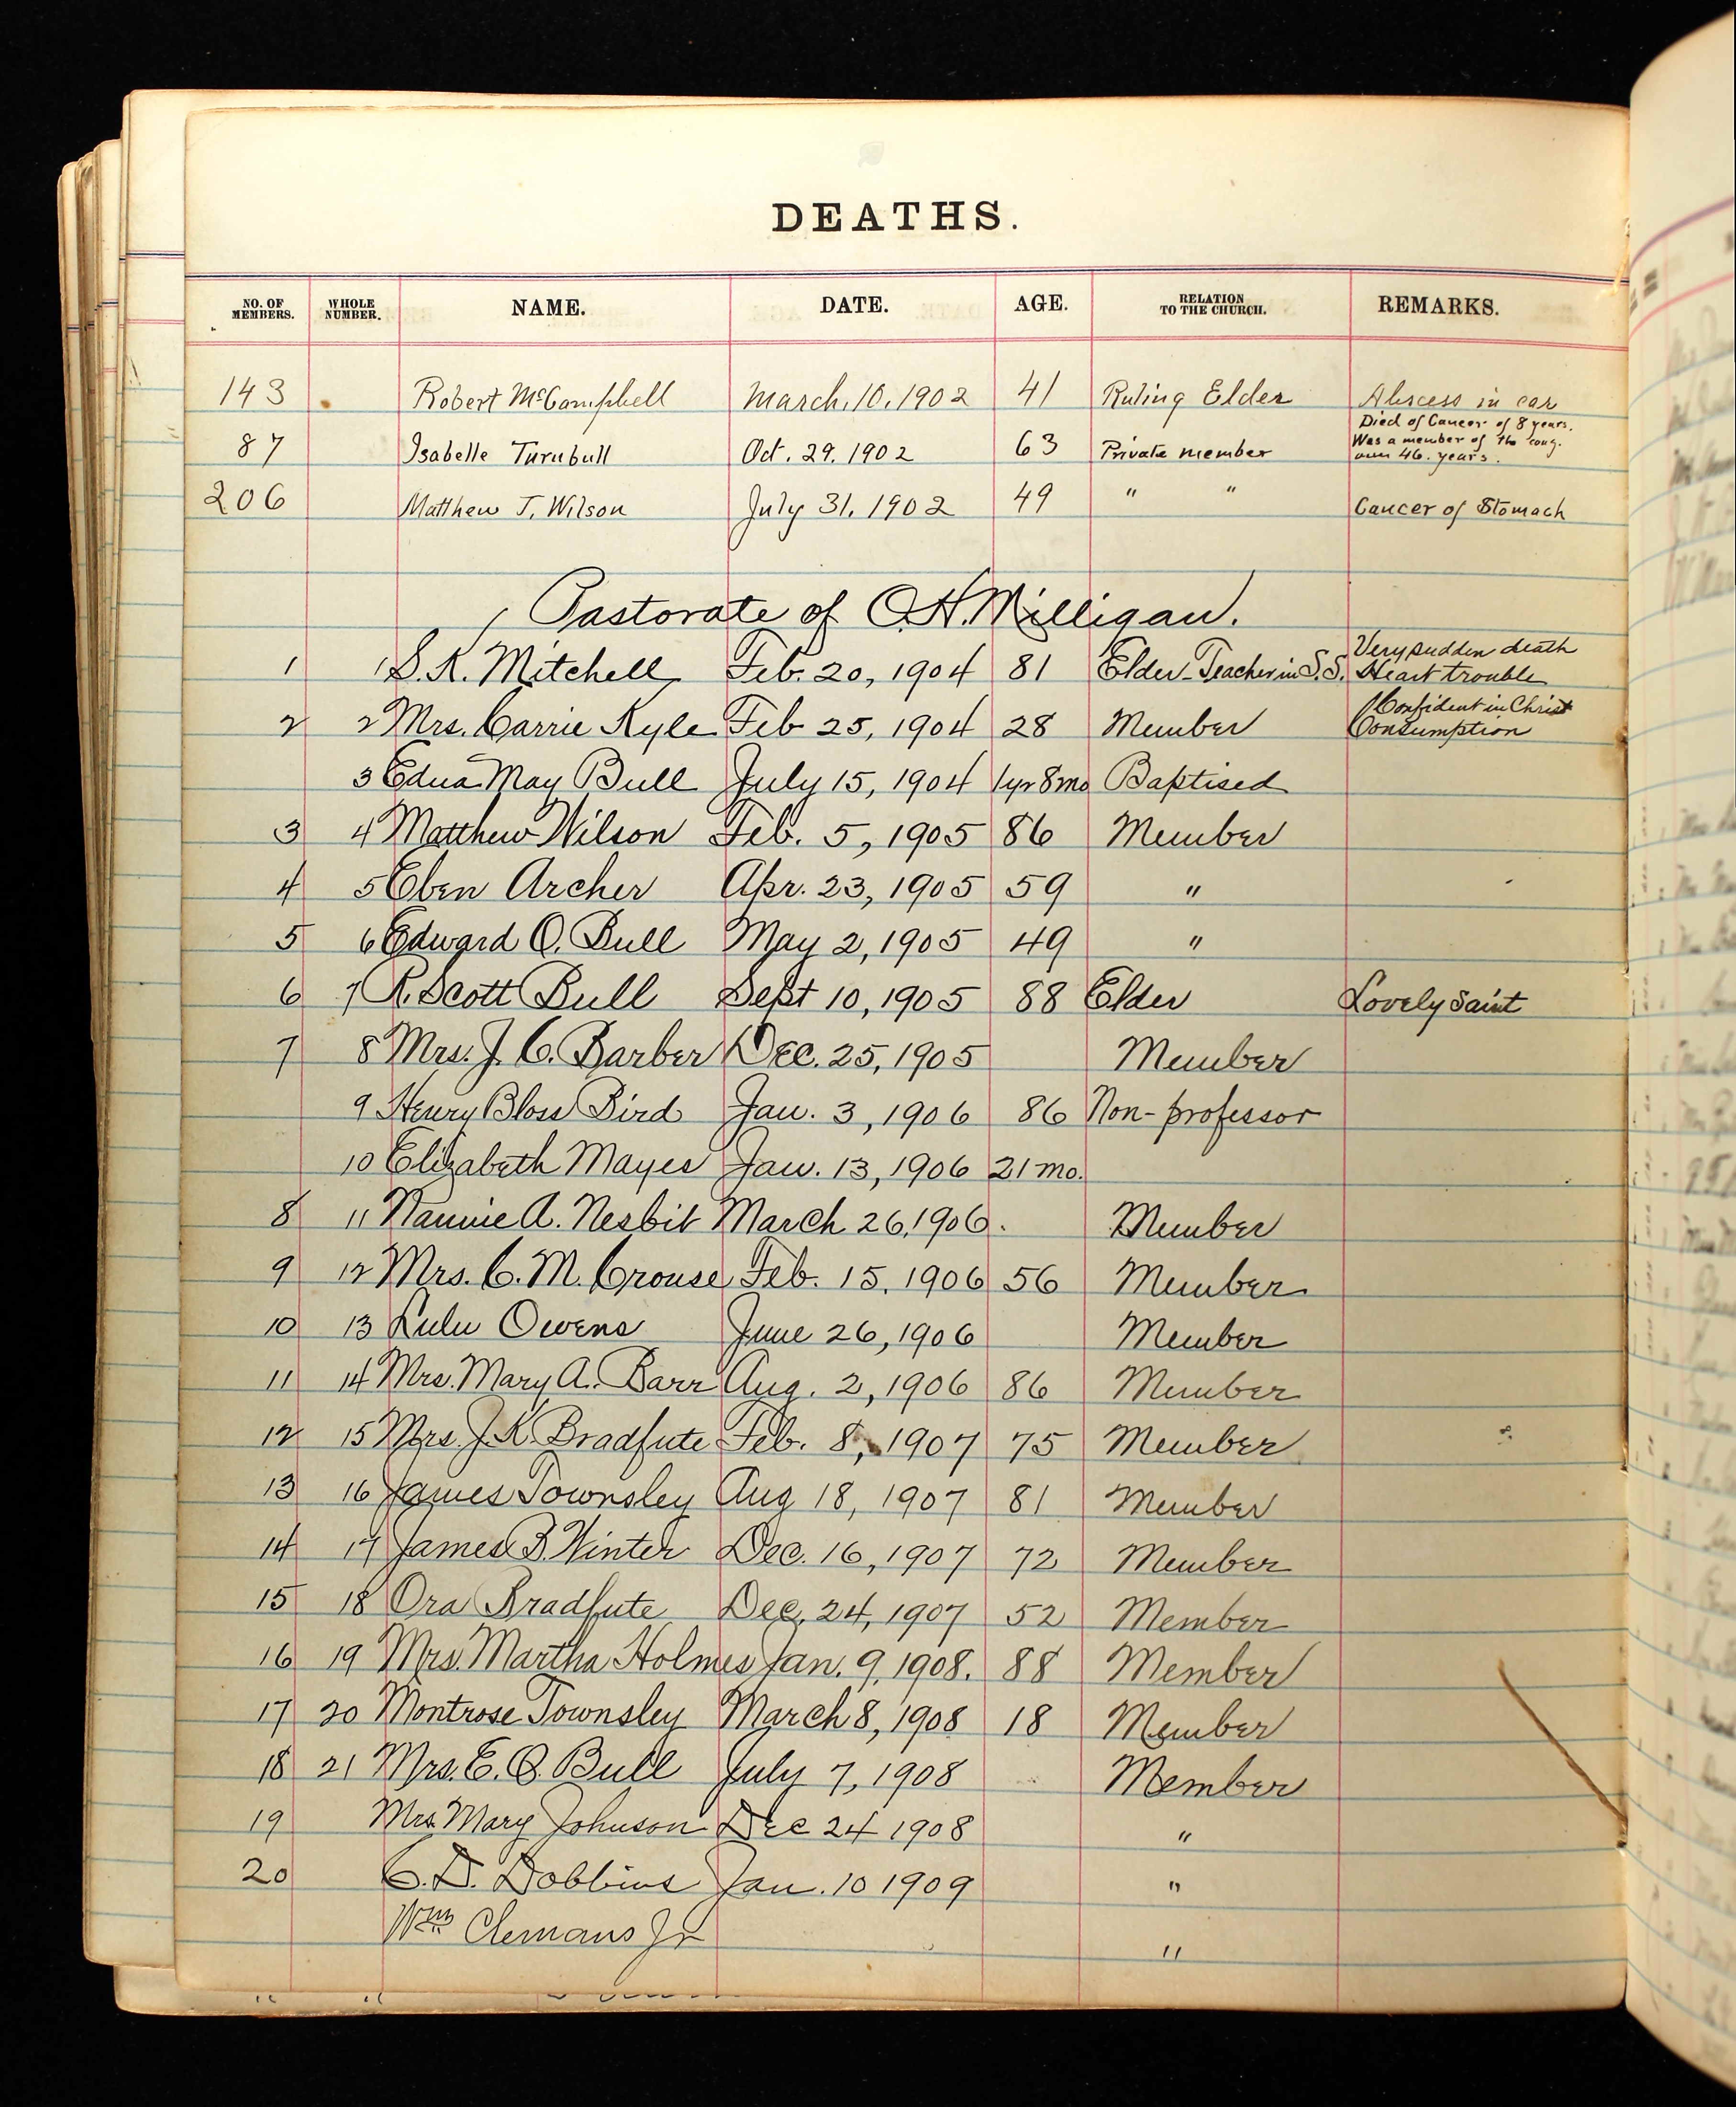 DEATHS.
NO. OF MEMBERS. WHOLE NUMBER. NAME. DATE. AGE. RELATION TO THE CHURCH. REMARKS.
143 Robert McCampbell March, 10, 1902 41 Ruling Elder Abscess in ear
87 Isabelle Turnbull Oct. 29. 1902 63 Private member Died of Cancer of 8 years.
Was a member of the cong.
over 46. years.
206 Matthew T. Wilson July 31, 1902 49 " " Cancer of Stomach
Pastorate of O.H. Milligan.
1 1 S. K. Mitchell Feb. 20, 1904 81 Elder - Teacher in S.S. Very sudden death
Heart trouble
2 2 Mrs. Carrie Kyle Feb 25, 1904 28 Member Confident in Christ
Consumption
3 Edna May Bull July 15, 1904 1yr 8mo Baptised
3 4 Matthew Wilson Feb. 5, 1905 86 Member
4 5 Eben Archer Apr. 23, 1905 59 "
5 6 Edward O. Bull May 2, 1905 49 "
6 7 R. Scott Bull Sept 10, 1905 88 Elder Lovely Saint
7 8 Mrs. J. C. Barber Dec. 25, 1905 Member
9 Henry Bloss Bird Jan. 3, 1906 86 Non-professor
10 Elizabeth Mayes Jan. 13, 1906 21 mo.
8 11 Nannie A. Nesbit March 26, 1906. Member
9 12 Mrs. C. M. Crouse Feb. 15, 1906 56 Member
10 13 Lulu Owens June 26, 1906 Member
11 14 Mrs. Mary A. Barr Aug. 2, 1906 86 Member
12 15 Mrs. J. K. Bradfute Feb. 8, 1907 75 Member
13 16 James Townsley Aug 18, 1907 81 Member
14 17 James B. Winter Dec. 16, 1907 72 Member
15 18 Ora Bradfute Dec. 24, 1907 52 Member
16 19 Mrs. Martha Holmes Jan. 9, 1908. 88 Member
17 20 Montrose Townsley March 8, 1908 18 Member
18 21 Mrs. E. O. Bull July 7, 1908 Member
19 Mrs Mary Johnson Dec 24 1908 "
20 C. D. Dobbins Jan. 10 1909 "
Wm Clemans Jr "